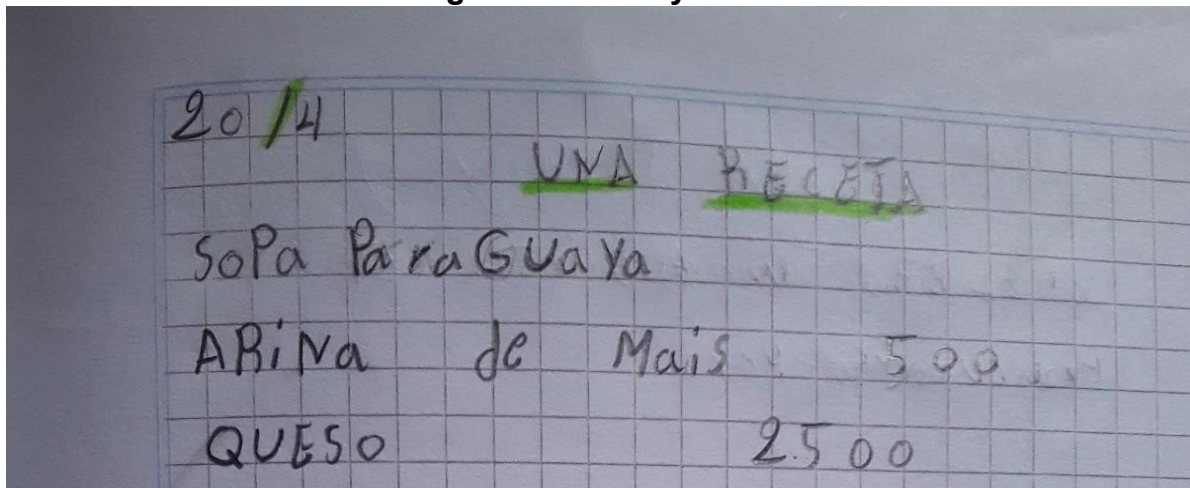 20/4
UNA RECETA
SoPa ParaGUaYa
ARiNa de Mais 500
QUESO 2.500